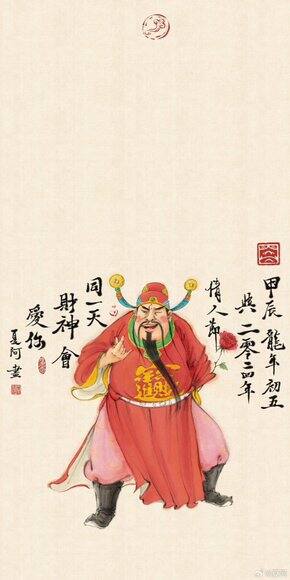 甲辰 龍年初五
與 二零二四年
情人節
同一天
財神會
愛你
夏阿畫